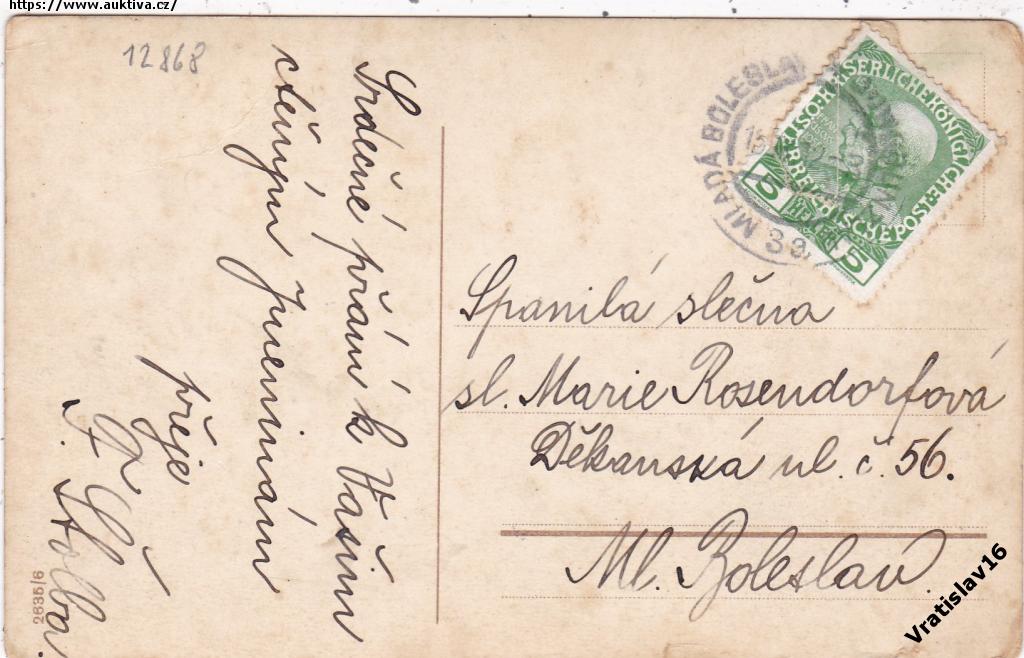 https://www.auktiva.cz/
12868
Srdečné přání k Vašim
ctěným Jmeninám
přeje
Fr. Holba
2635/6
MLADÁ BOLESLAV
KAISERLICHE KÖNIGLICHE
ÖSTERREICHISCHE POST
5
5
Spanilá slečna
sl. Marie Rosendorfová
Děkanská ul. č. 56.
Ml. Boleslav.
Vratislav16